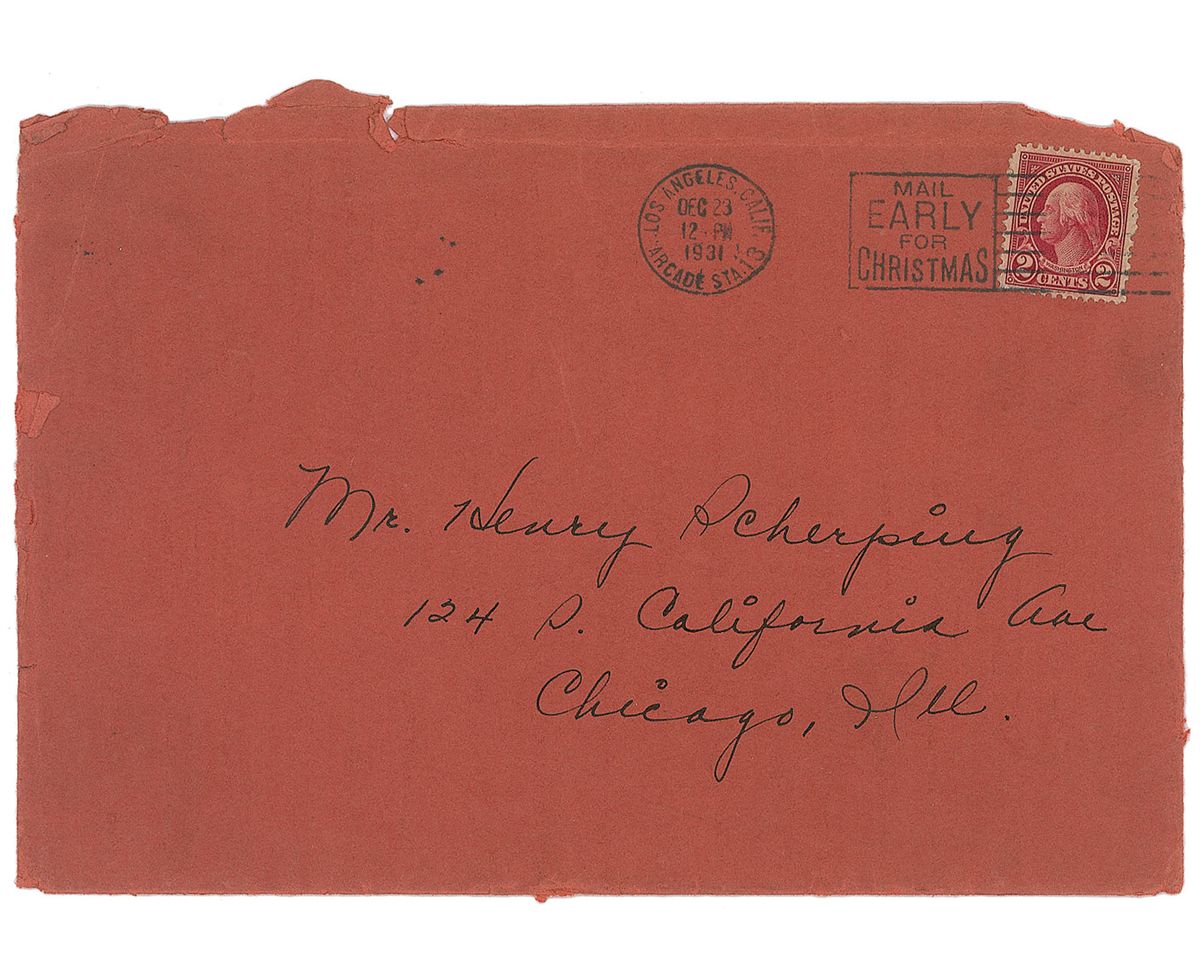 LOS ANGELES, CALIF.
DEC 23
12 - PM
1931
ARCADE STA. 13
MAIL
EARLY
FOR
CHRISTMAS
UNITED STATES POSTAGE
WASHINGTON
2 CENTS 2
Mr. Henry Scherping
124 S. California Ave
Chicago, Ill.